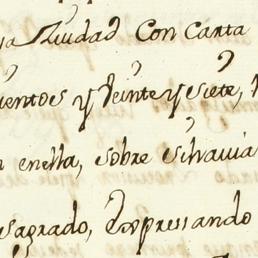 Ciudad Con Carta
cientos y Veinte y siete,
enella, sobre si havia
sagrado, Expressando